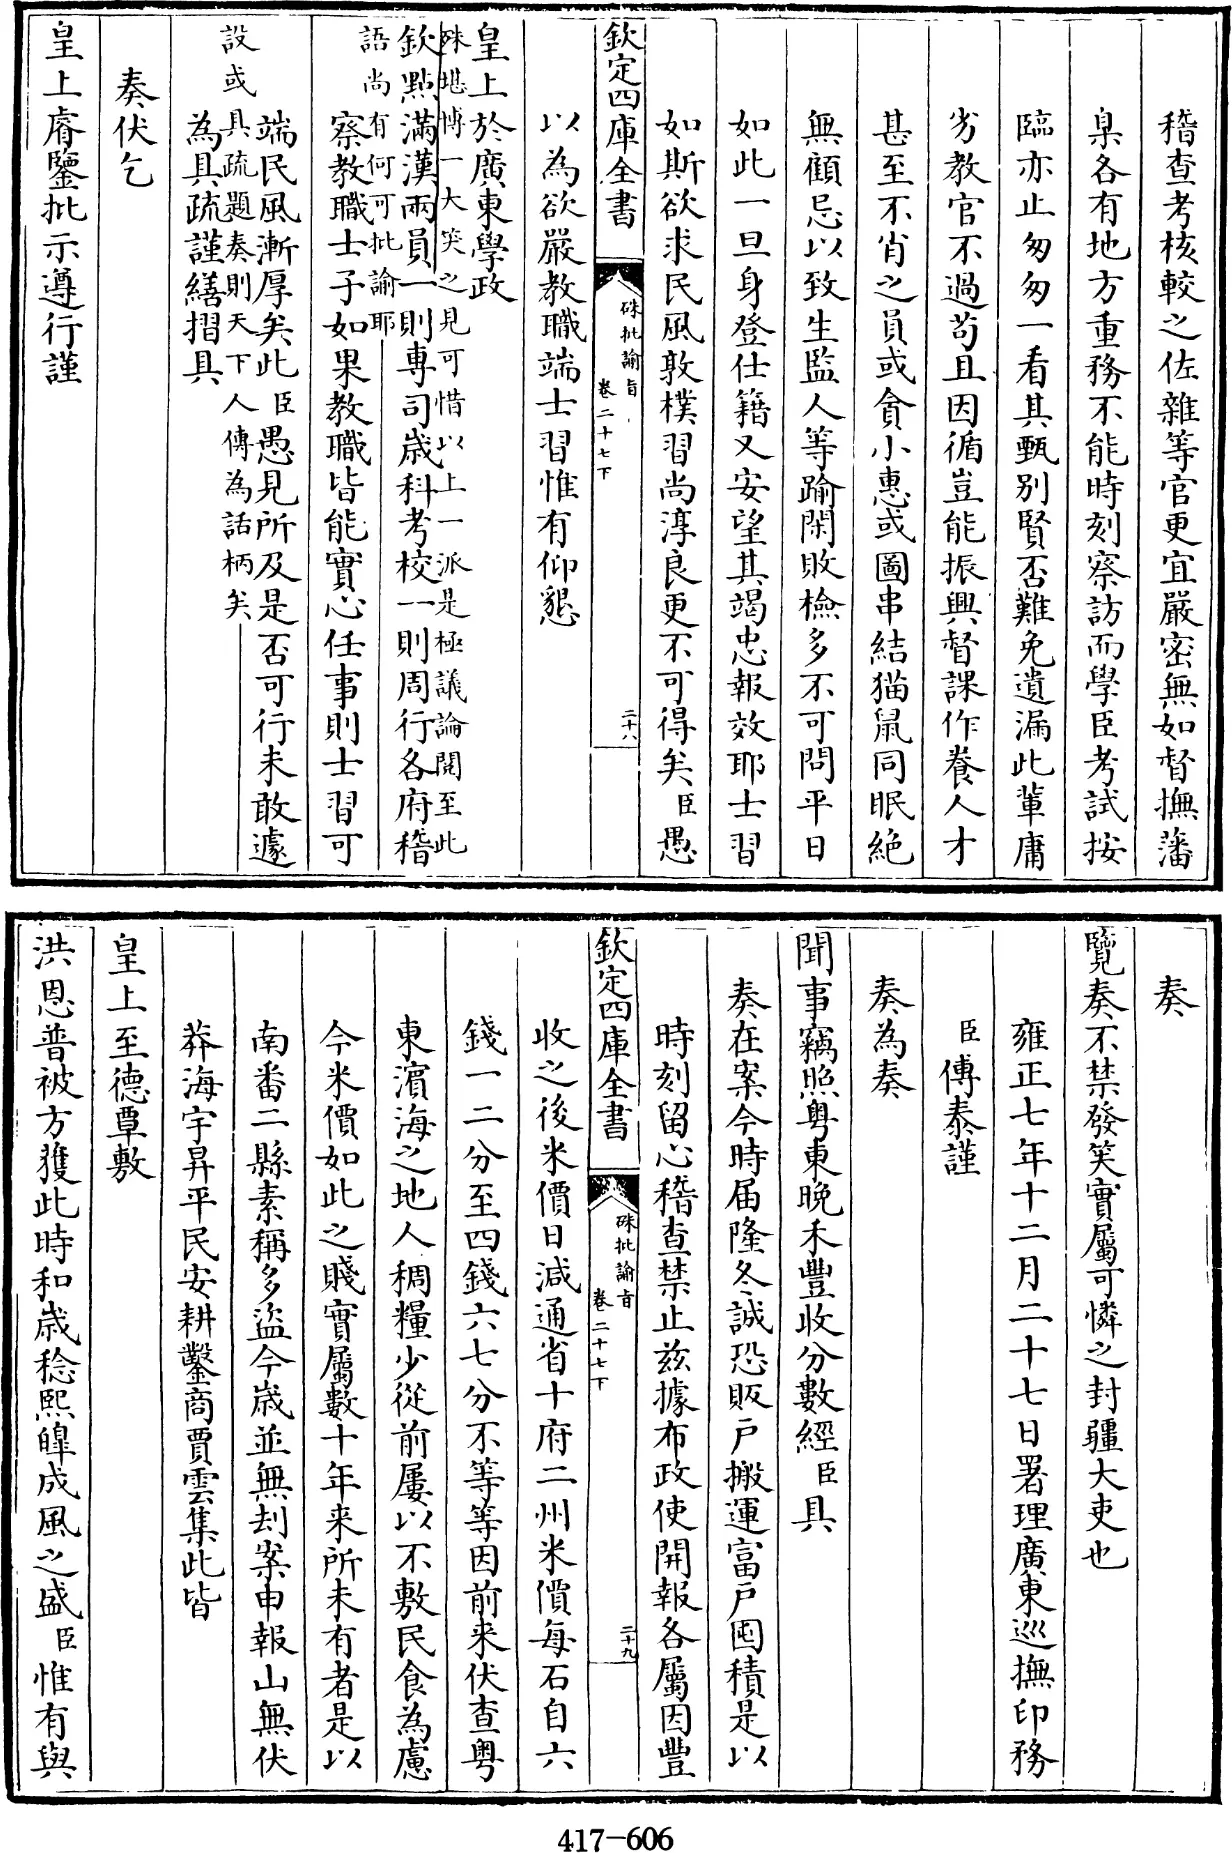 稽查考核較之佐雜等官更宜嚴密無如督撫藩
臬各有地方重務不能時刻察訪而學臣考試按
臨亦止匆匆一看其甄別賢否難免遺漏此輩庸
劣教官不過苟且因循豈能振興督課作養人才
甚至不肖之員或貪小惠或圖串結猫鼠同眠絶
無顧忌以致生監人等踰閑敗檢多不可問平日
如此一旦身登仕籍又安望其竭忠報效耶士習
如斯欲求民風敦樸習尚淳良更不可得矣臣愚
欽定四庫全書
硃批諭旨
卷二十七下
二十八
以為欲嚴教職端士習惟有仰懇
皇上於廣東學政
殊堪博一大笑之見可惜以上一派是極議論閱至此
欽點滿漢兩員一則專司歳科考校一則周行各府稽
語尚有何可批諭耶
察教職士子如果教職皆能實心任事則士習可
端民風漸厚矣此臣愚見所及是否可行未敢遽
設或具疏題奏則天下人傳為話柄矣
為具疏謹繕摺具
奏伏乞
皇上睿鑒批示遵行謹
奏
覽奏不禁發笑實屬可憐之封疆大吏也
雍正七年十二月二十七日署理廣東巡撫印務
臣傅泰謹
奏為奏
聞事竊照粤東晚禾豐收分數經臣具
奏在案今時届隆冬誠恐販戶搬運富戶囤積是以
時刻留心稽查禁止兹據布政使開報各屬因豐
欽定四庫全書
硃批諭旨
卷二十七下
二十九
收之後米價日減通省十府二州米價每石自六
錢一二分至四錢六七分不等等因前來伏查粤
東濱海之地人稠糧少從前屢以不敷民食為慮
今米價如此之賤實屬數十年來所未有者是以
南番二縣素稱多盜今歳並無刦案申報山無伏
莽海宇昇平民安耕鑿商賈雲集此皆
皇上至德覃敷
洪恩普被方獲此時和歳稔熙皥成風之盛臣惟有與
417-606